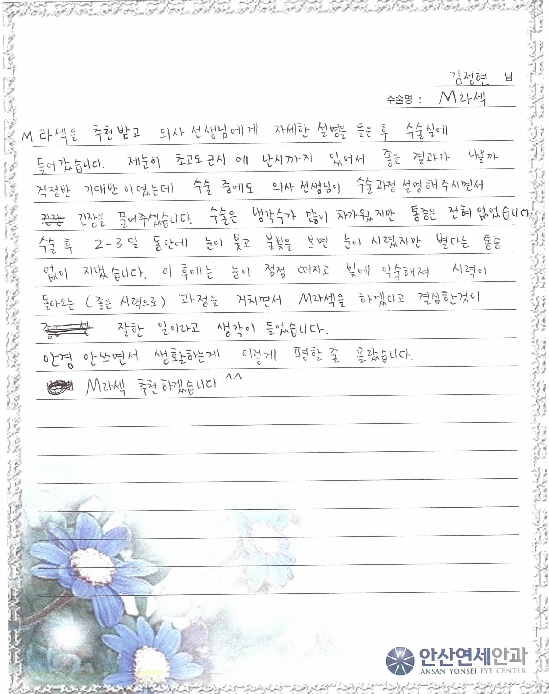 김정현 님
수술명 : M라섹
M라섹을 추천받고 의사 선생님에게 자세한 설명을 들은 후 수술실에
들어갔습니다. 제눈이 초고도 근시에 난시까지 있어서 좋은 결과가 나올까
걱정반 기대반 이였는데 수술 중에도 의사 선생님이 수술과정 설명해주시면서
긴장을 풀어주셨습니다. 수술은 생각수가 많이 차가웠지만 통증은 전혀 없었습니다
수술 후 2-3일 동안에 눈이 붓고 불빛을 보면 눈이 시렸지만 별다른 통증
없이 지냈습니다. 이 후에는 눈이 점점 떠지고 빛에 익숙해져 시력이
돌아오는 (좋은 시력으로) 과정을 거치면서 M라섹을 하겠다고 결심한것이
잘한 일이라고 생각이 들었습니다.
안경 안쓰면서 생활하는게 이렇게 편한 줄 몰랐습니다.
M라섹 추천하겠습니다 ^^
안산연세안과
ANSAN YONSEI EYE CENTER